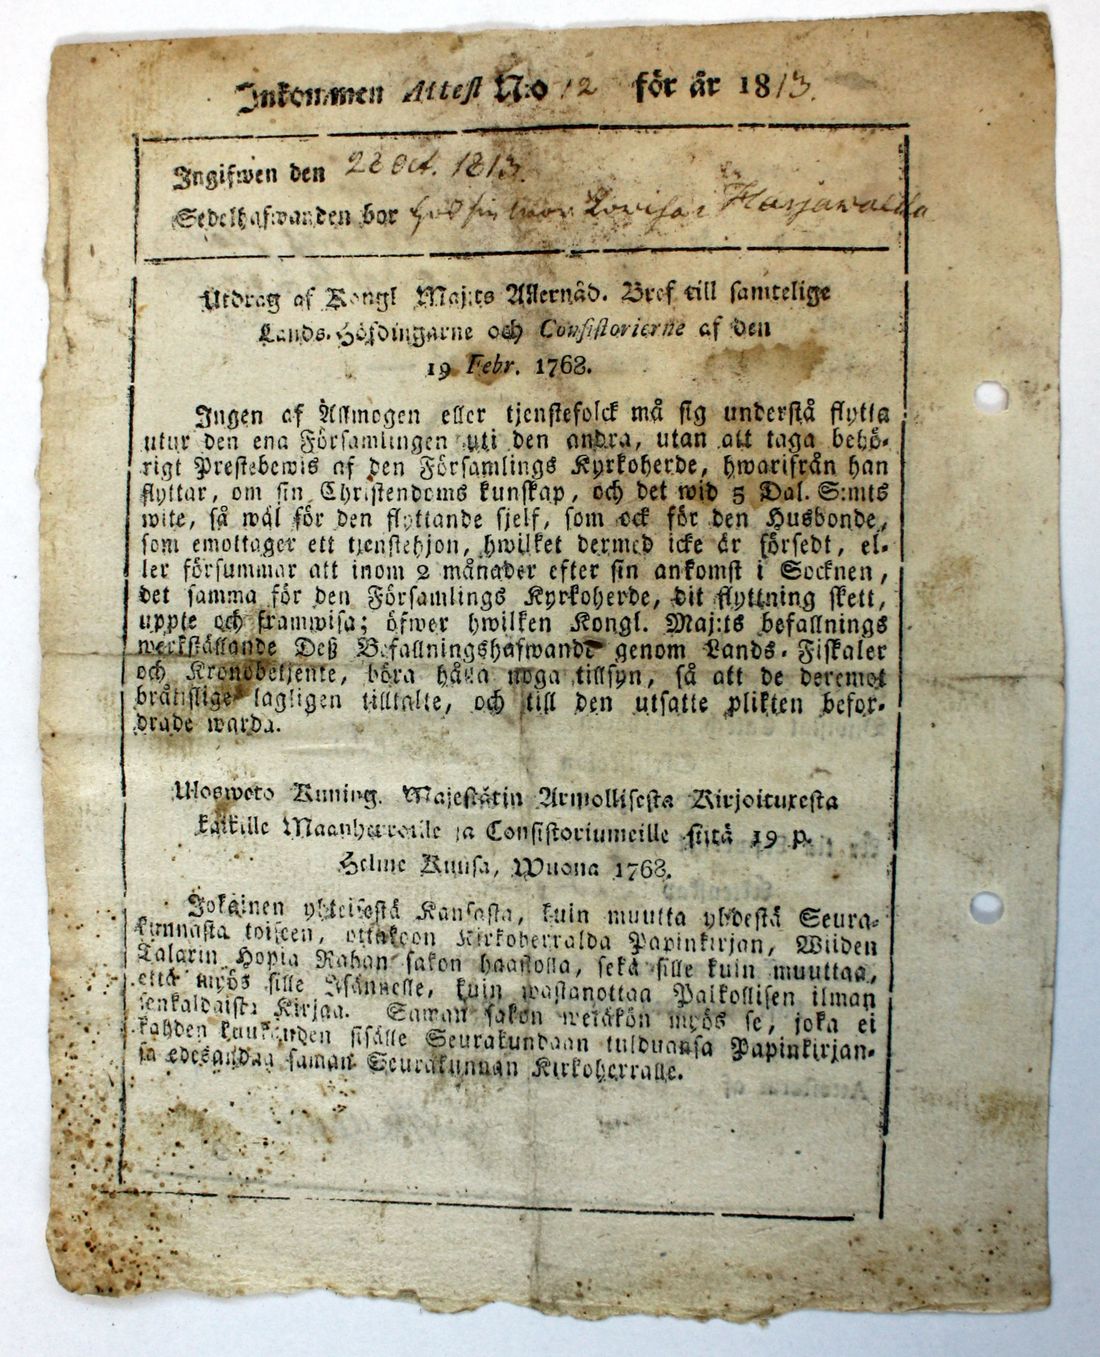 Inkommen Attest N:o 12 för år 1813.
Ingifwen den 28 Oct. 1813.
Sedelhafwanden bor hos sin mor Lovisa i Harjawalda
Utdrag af Kongl Maj:ts Allernåd. Bref till samtelige
Lands-Höfdingarne och Consistorierne af den
19 Febr. 1768.
Ingen af Allmogen eller tjenstefolck må sig understå flytta
utur den ena Församlingen uti den andra, utan att taga behö-
rigt Prestebewis af den Församlings Kyrkoherde, hwarifrån han
flyttar, om sin Christendoms kunskap, och det wid 5 Dal. S:mts
wite, så wäl för den flyttande sjelf, som ock för den Husbonde,
som emottager ett tjenstehjon, hwilket dermed icke är försedt, el-
ler försummar att inom 2 månader efter sin ankomst i Socknen,
det samma för den Församlings Kyrkoherde, dit flyttning skett,
uppte och framwisa; öfwer hwilken Kongl. Maj:ts befallnings
werkställande Deß Befallningshafwande genom Lands-Fiskaler
och Kronobetjente, böra hålla noga tillsyn, så att de deremot
bråtislige lagligen tilltalte, och till den utsatte plikten befor-
drade warda.
Ulosweto Kuning. Majestätin Armollisesta Kirjoituxesta
kaikille Maanherroille ja Consistoriumeille siitä 19 p.
Helme Kuusa, Wuona 1768.
Jokainen yhteisestä Kansasta, kuin muutta yhdestä Seura-
kunnasta toiseen, ottakoon Kirkoherralda Papinkirjan, Wiiden
Talarin Hopia Rahan sakon haastolla, sekä sille kuin muuttaa,
että myös sille Isännelle, kuin wastanottaa Palkollisen ilman
senkaldaista Kirjaa. Saman sakon wetäkön myös se, joka ei
kahden kuukauden sisälle Seurakundaan tulduansa Papinkirjan-
sa edesandaa saman Seurakunnan Kirkoherralle.